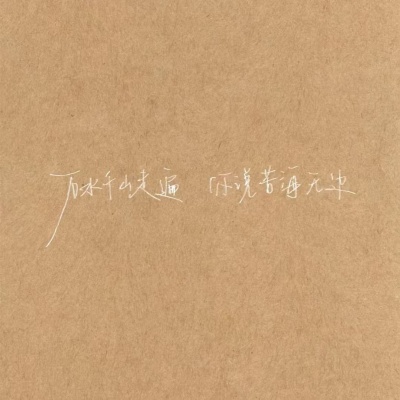 万水千山走遍 你说苦海无边